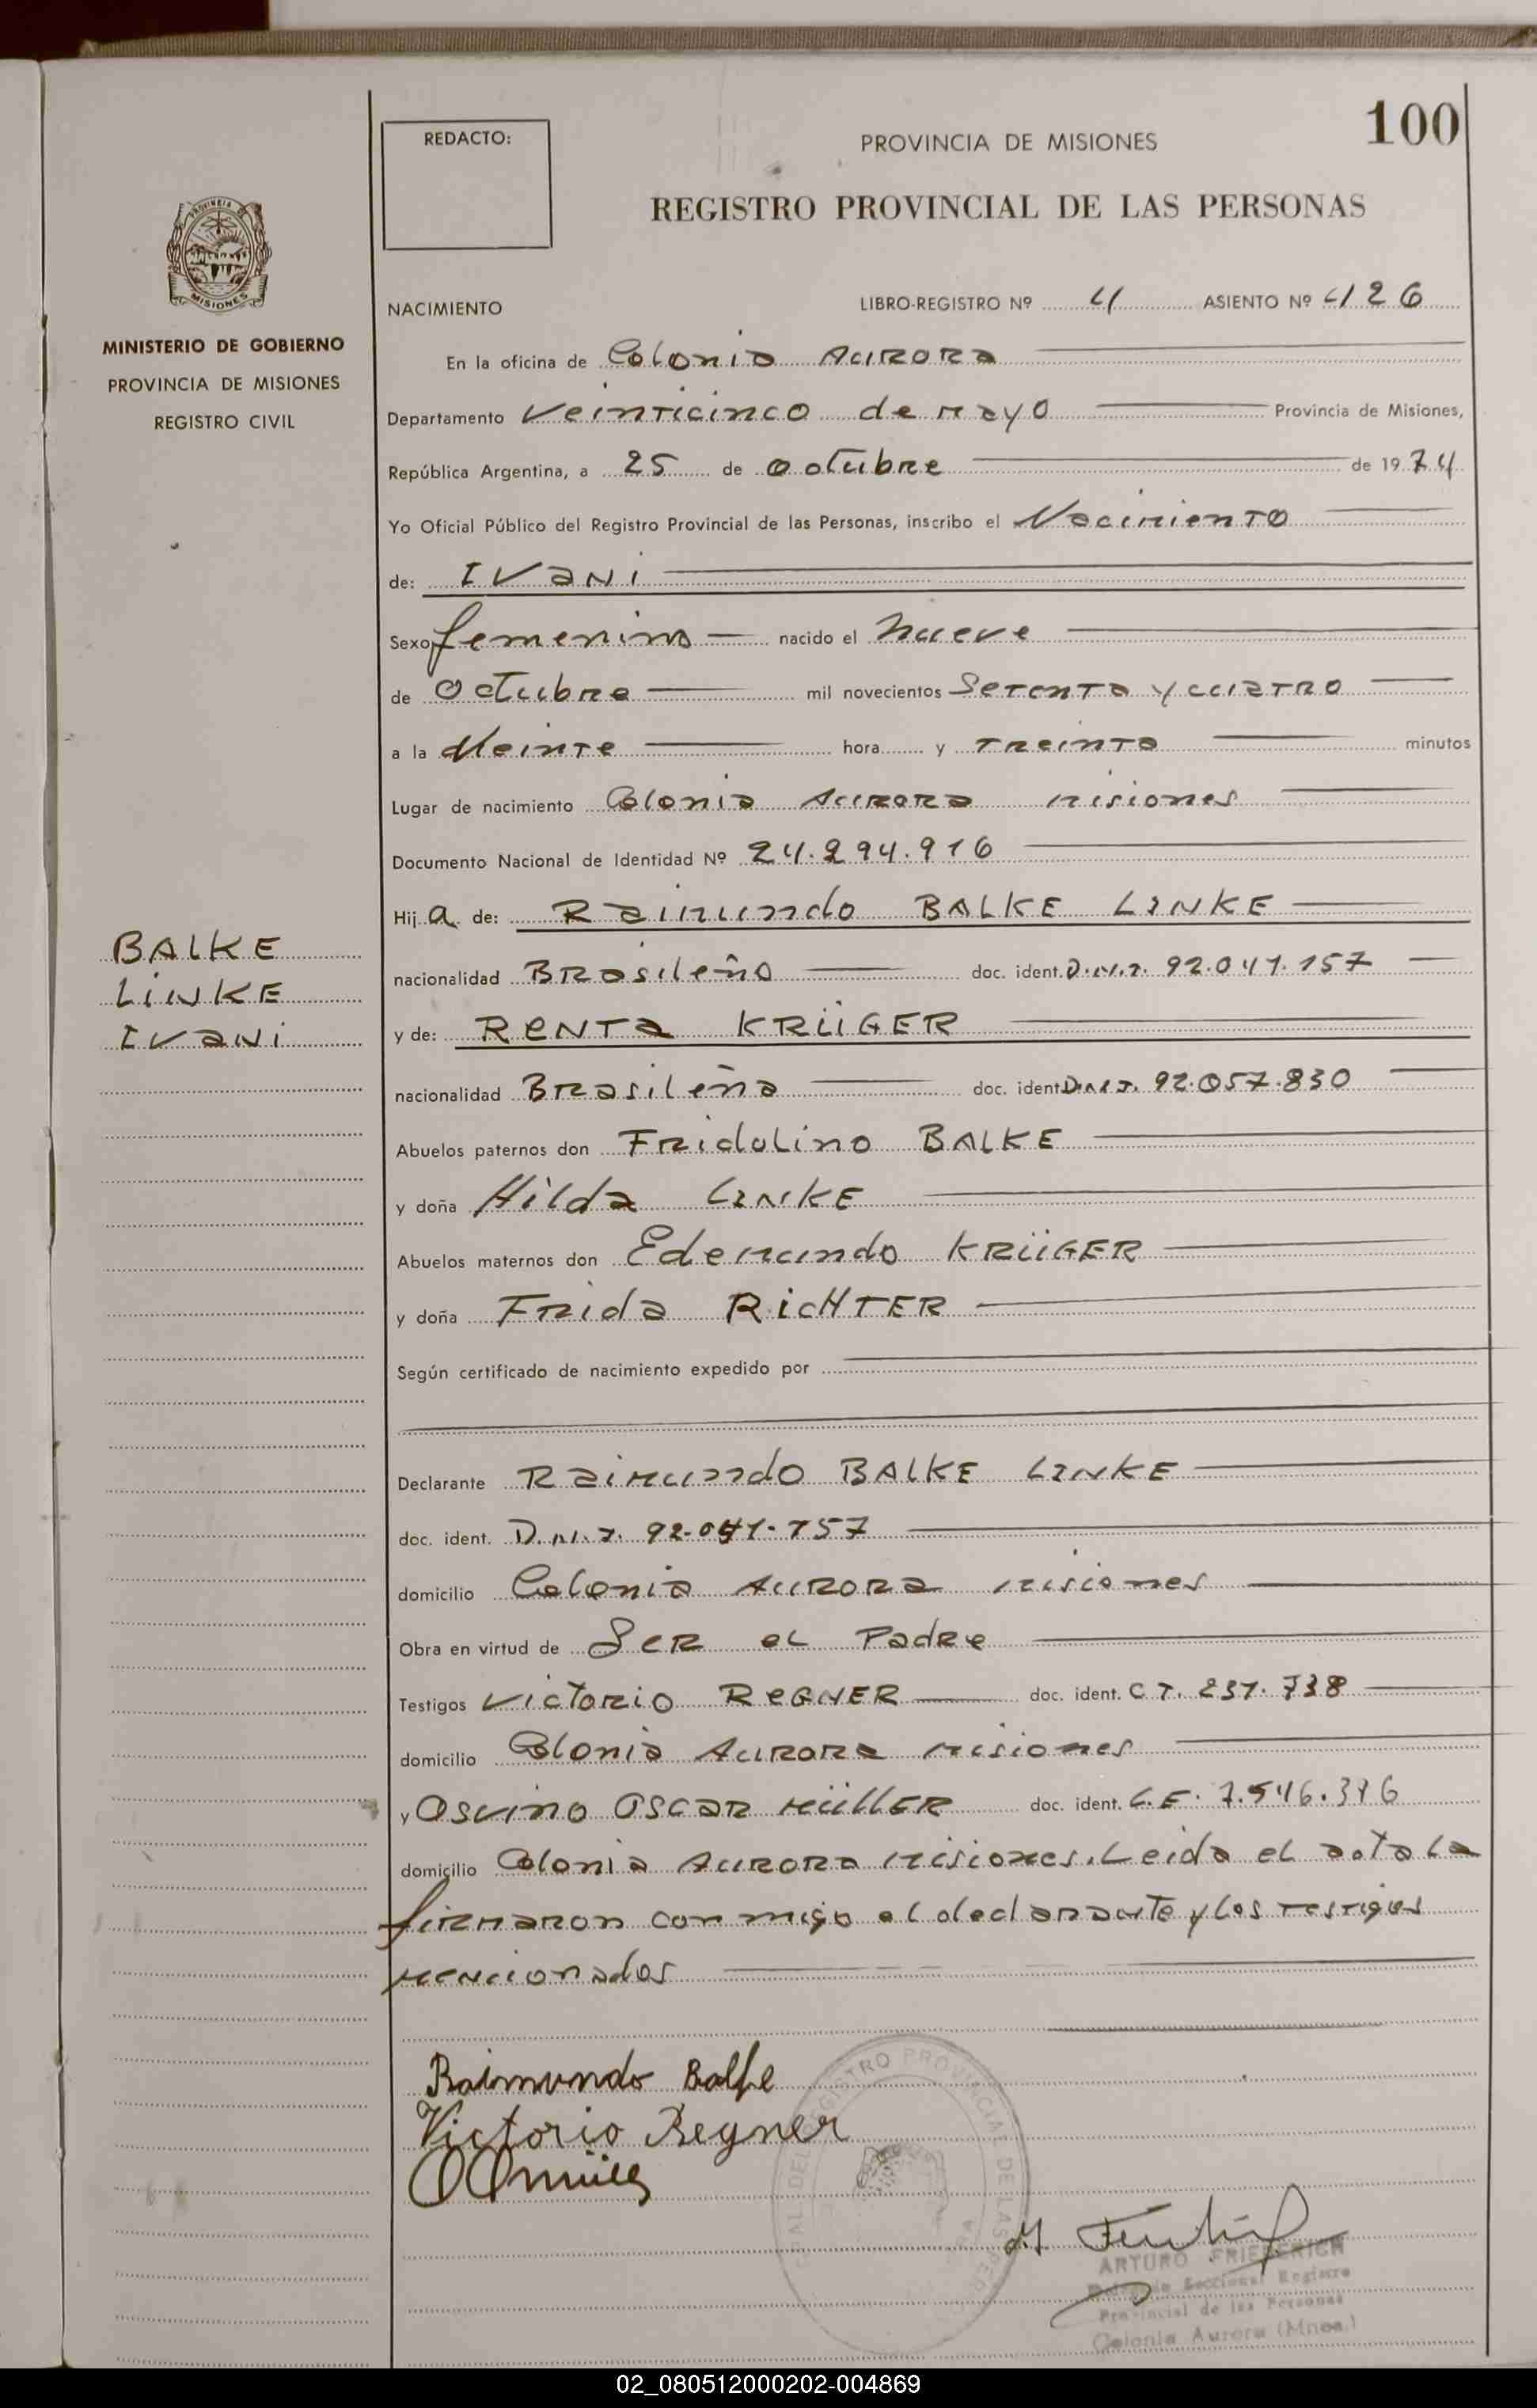 100
REDACTO:
PROVINCIA DE MISIONES
REGISTRO PROVINCIAL DE LAS PERSONAS
PROVINCIA DE
MISIONES
MINISTERIO DE GOBIERNO
PROVINCIA DE MISIONES
REGISTRO CIVIL
NACIMIENTO LIBRO-REGISTRO Nº 4 ASIENTO Nº 4126
En la oficina de Colonia Aurora
Departamento Veinticinco de Mayo Provincia de Misiones,
República Argentina, a 25 de Octubre de 1974
Yo Oficial Público del Registro Provincial de las Personas, inscribo el Nacimiento
de: Ivani
Sexo femenino nacido el Nueve
de Octubre mil novecientos Setenta y cuatro
a la Veinte hora y Treinta minutos
Lugar de nacimiento Colonia Aurora Misiones
Documento Nacional de Identidad Nº 24.294.916
Hija de: Raimundo BALKE LINKE
BALKE
LINKE
Ivani
nacionalidad Brasileño doc. ident. D.N.I. 92.041.157
y de: Renta KRÜGER
nacionalidad Brasileña doc. ident. D.N.I. 92.057.830
Abuelos paternos don Fridolino BALKE
y doña Hilda LINKE
Abuelos maternos don Edemundo KRÜGER
y doña Frida RICHTER
Según certificado de nacimiento expedido por
Declarante Raimundo BALKE LINKE
doc. ident. D.N.I. 92.041.157
domicilio Colonia Aurora Misiones
Obra en virtud de Ser el Padre
Testigos Victorio REGNER doc. ident. C.I. 231.738
domicilio Colonia Aurora Misiones
y Osvino Oscar MÜLLER doc. ident. L.E. 7.546.316
domicilio Colonia Aurora Misiones. Leida el acta la
firmaron conmigo el declarante y los testigos
mencionados
Raimundo Balke
Victorio Regner
ARTURO FRIEDERICH
Seccional Registro
Provincial de las Personas
Colonia Aurora (Mnes.)
02_080512000202-004869